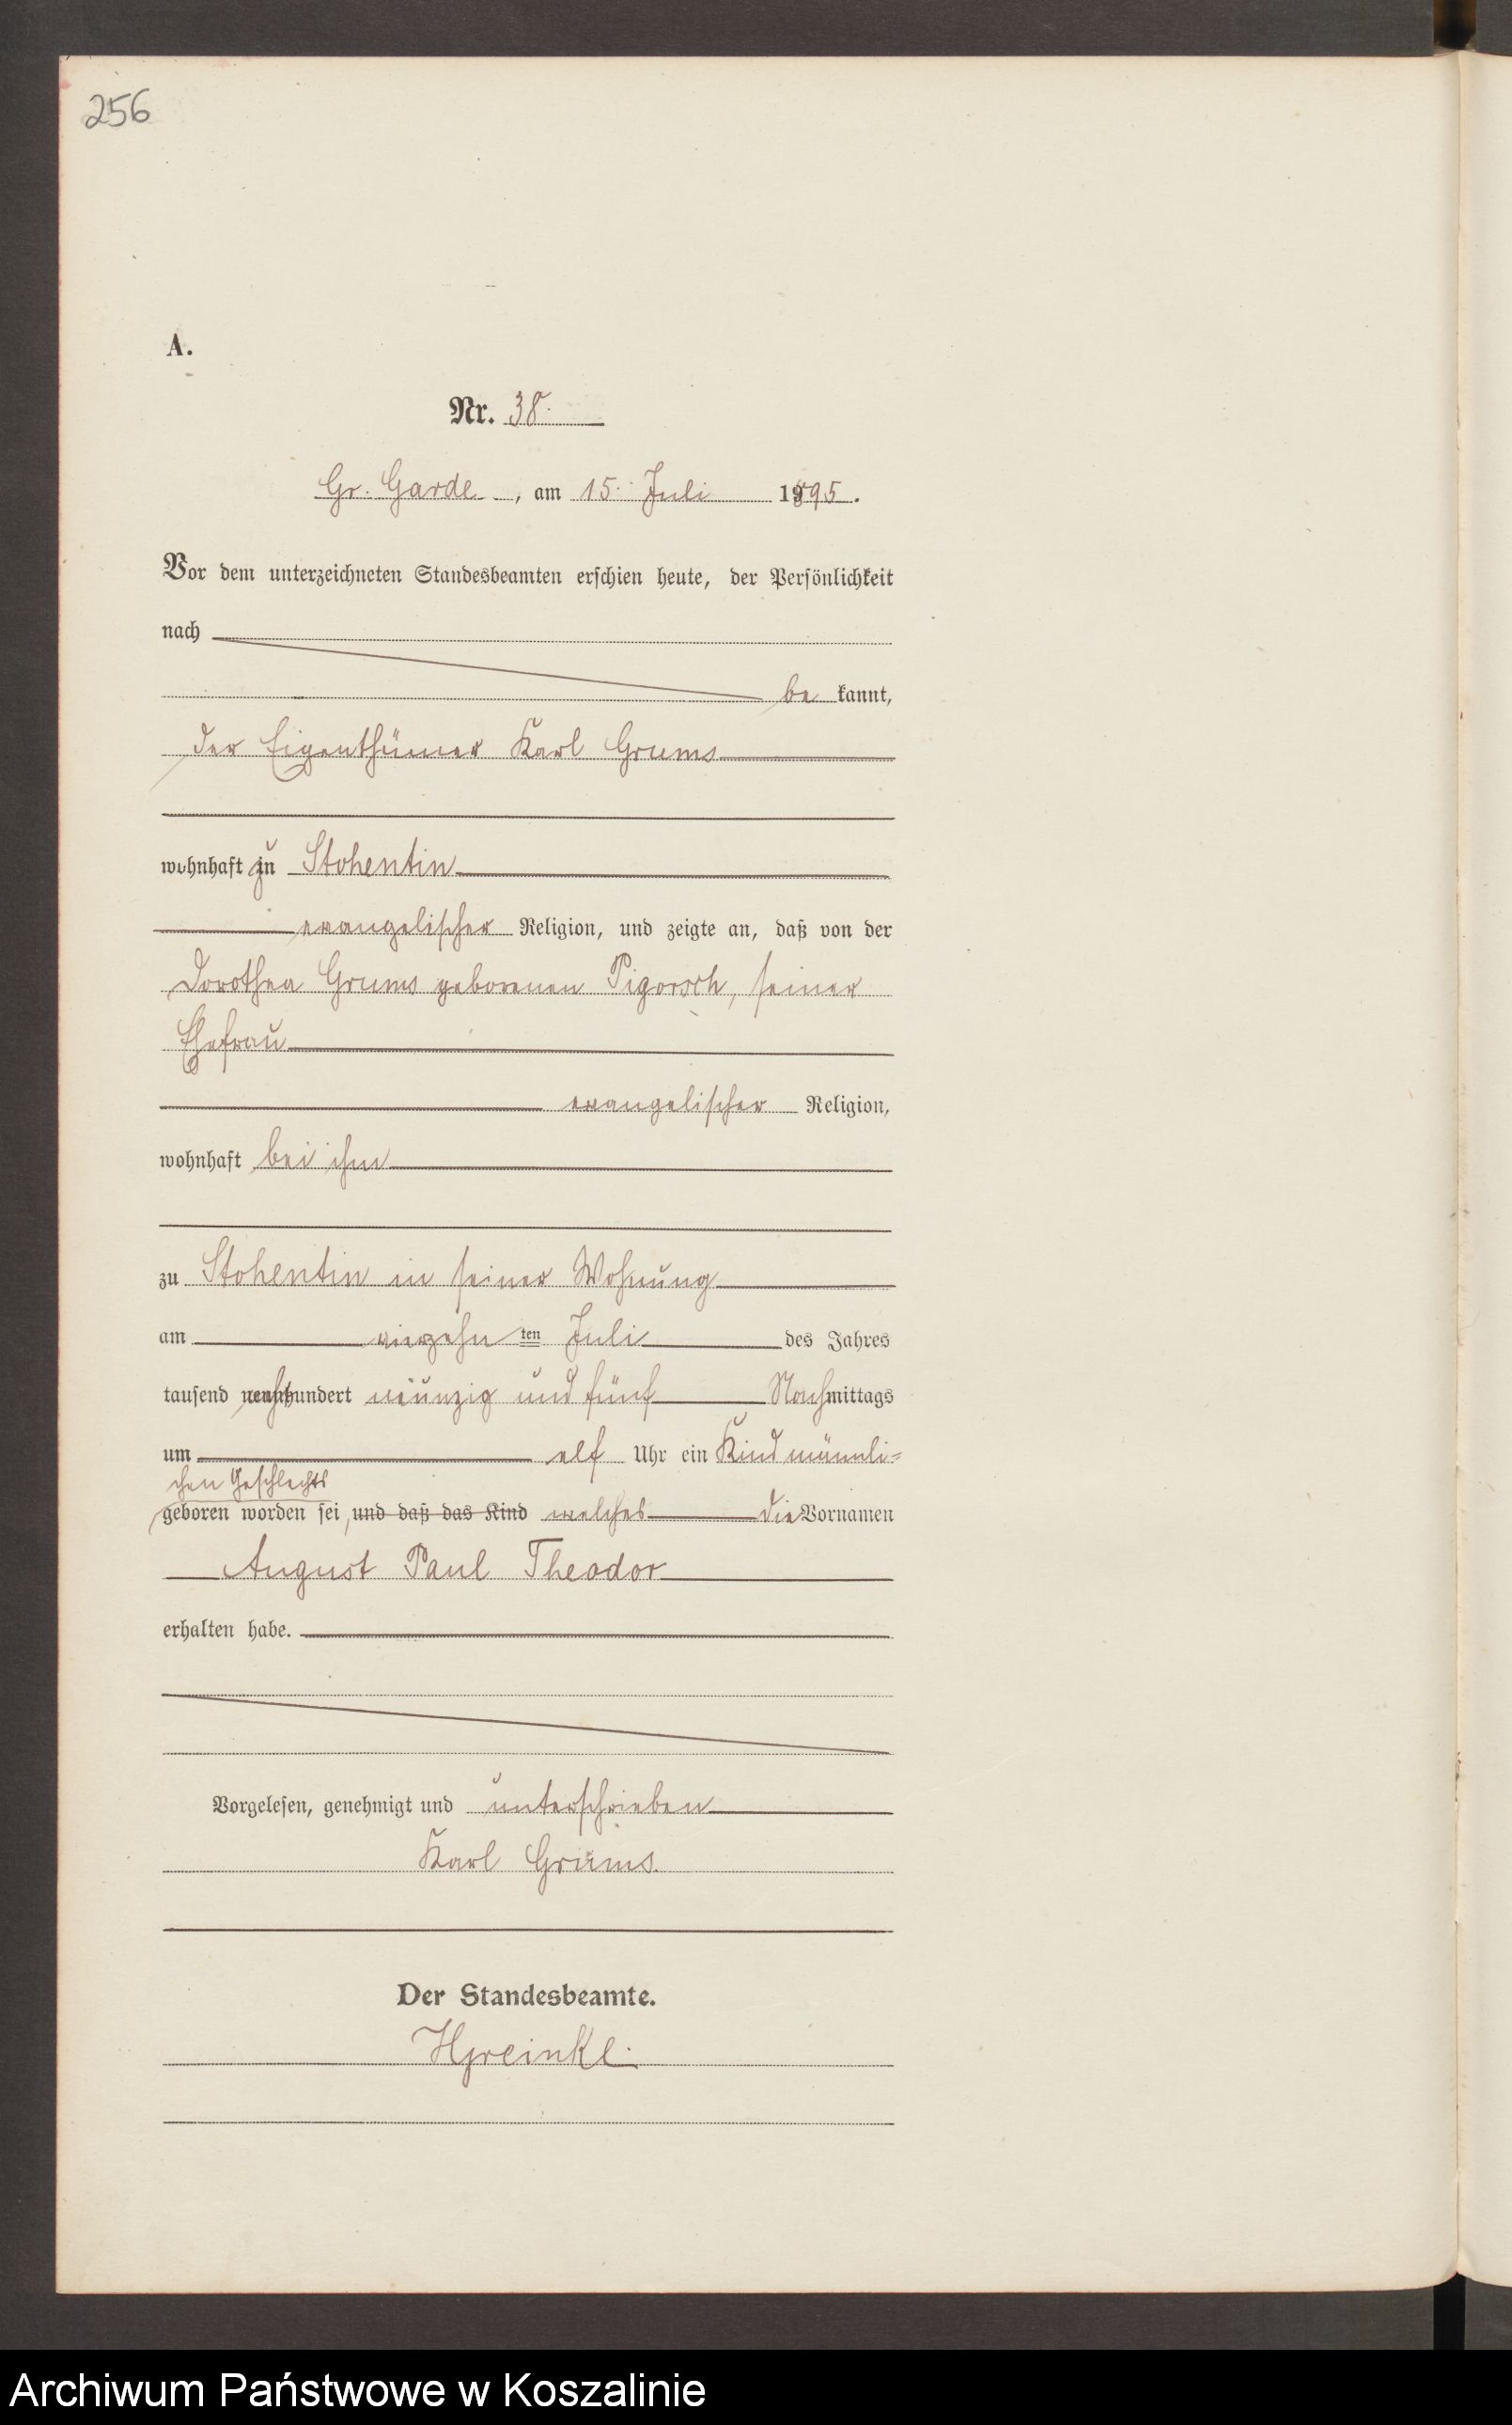 256
A.
Nr. 38.
Gr. Garde, am 15. Juli 1895.
Vor dem unterzeichneten Standesbeamten erschien heute, der Persönlichkeit
nach
be kannt,
der Eigenthümer Karl Grums
wohnhaft zu Stohentin
evangelischer Religion, und zeigte an, daß von der
Dorothea Grums geborenen Pigorsch, seiner
Ehefrau
evangelischer Religion,
wohnhaft bei ihm
zu Stohentin in seiner Wohnung
am vierzehn ten Juli des Jahres
tausend achthundert neunzig und fünf Nachmittags
um elf Uhr ein Kind männli=
chen Geschlechts
geboren worden sei, und daß das Kind welches die Vornamen
August Paul Theodor
erhalten habe.
Vorgelesen, genehmigt und unterschrieben
Karl Grums.
Der Standesbeamte.
Archiwum Państwowe w Koszalinie